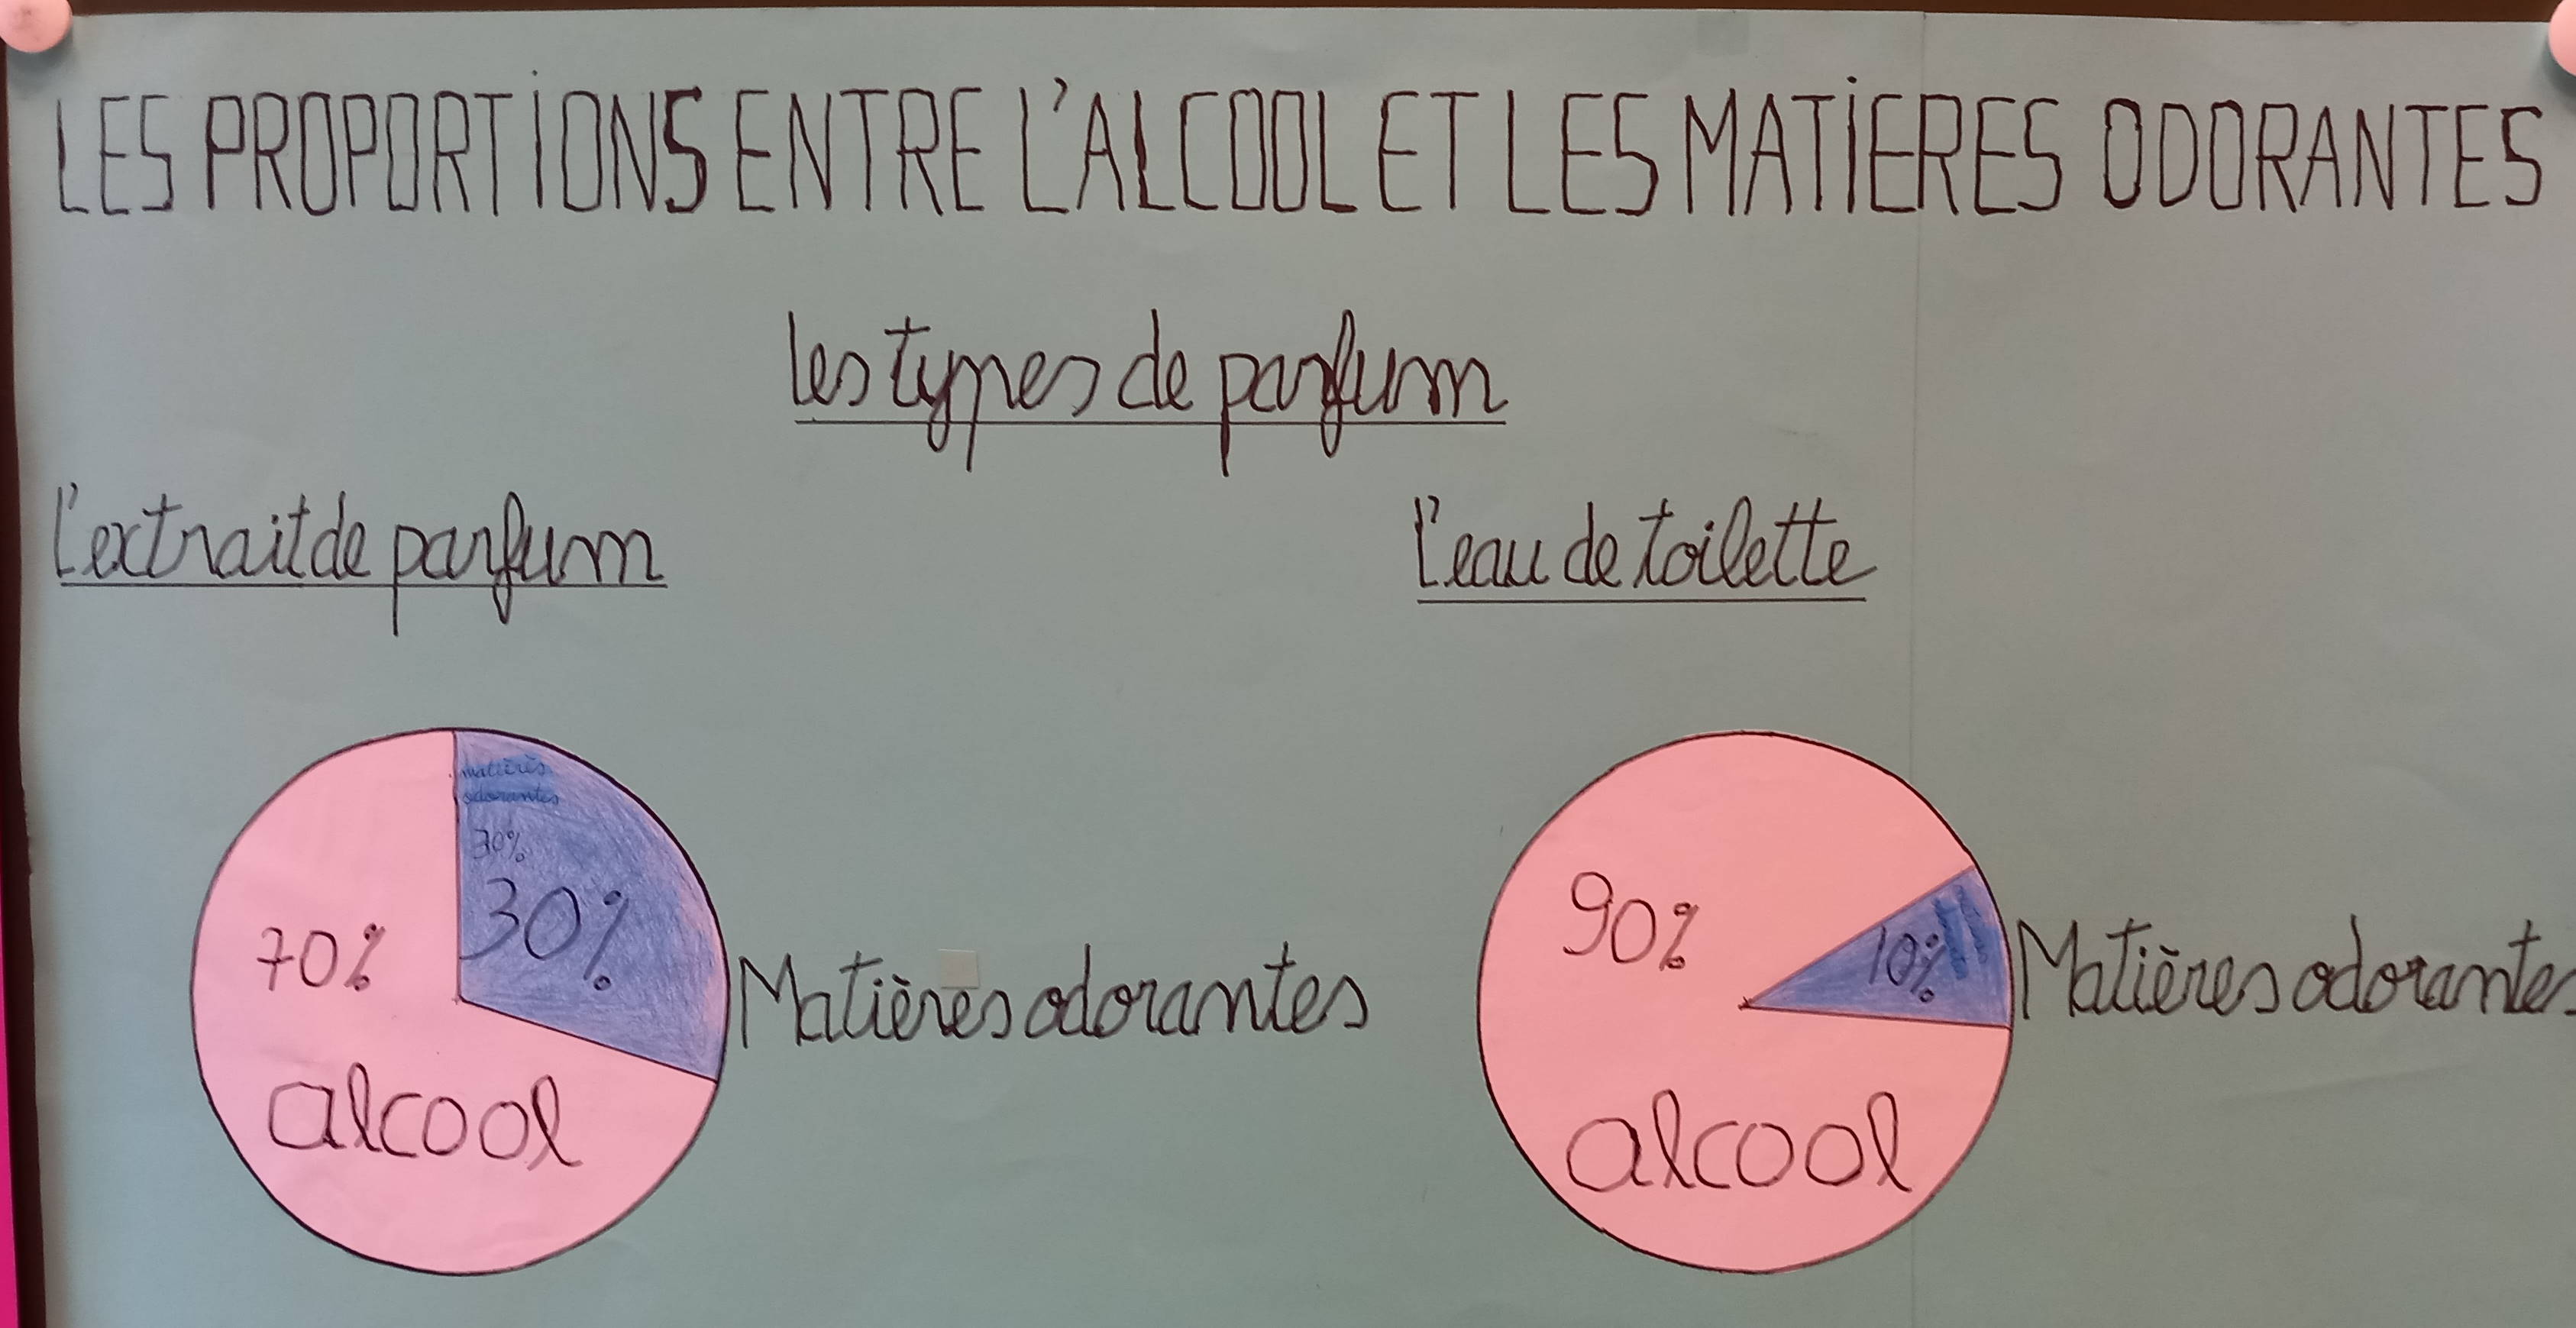 LES PROPORTIONS ENTRE L'ALCOOL ET LES MATIERES ODORANTES
les types de parfum
l'extrait de parfum
l'eau de toilette
matières
odorantes
30%
30%
70%
alcool
Matières odorantes
90%
10%
alcool
Matières odorantes